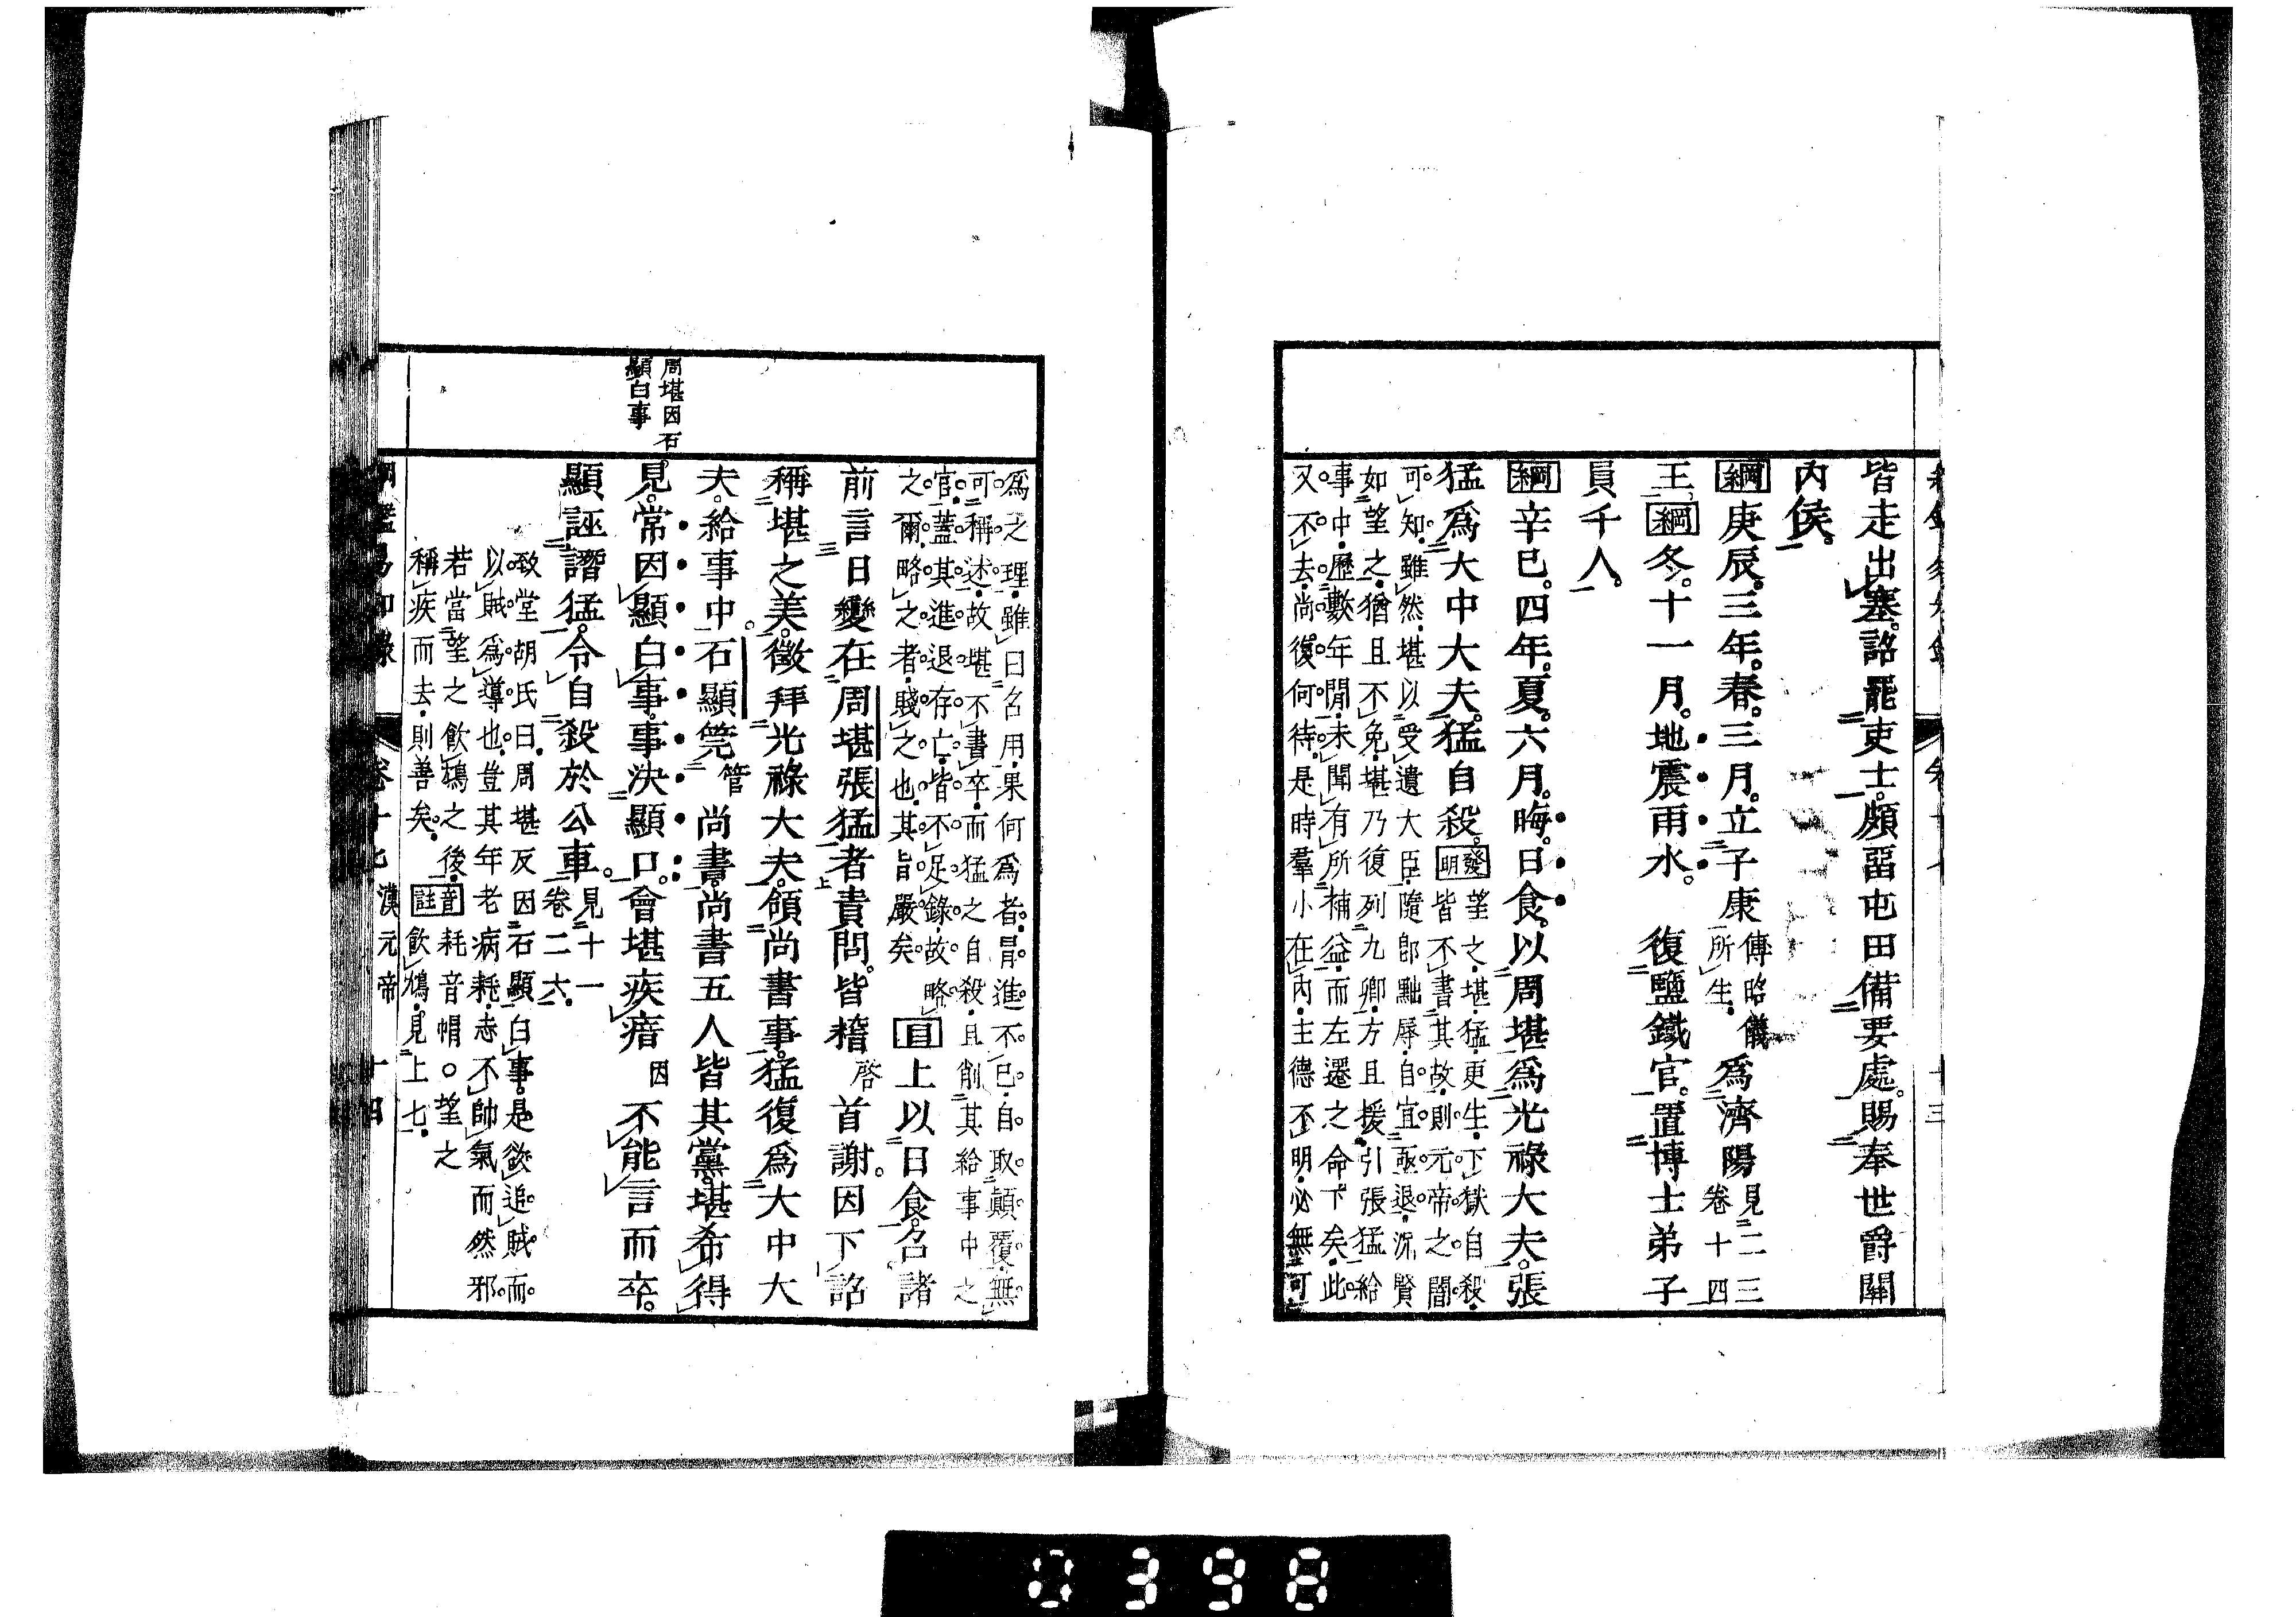 皆走出塞。詔罷吏士。頗畱屯田備要處。賜奉世爵關
內侯。
綱庚辰。三年。春。三月。立子康傅昭儀所生。爲濟陽見二三卷十四
王。綱冬。十一月。地震雨水。 復鹽鐵官。置博士弟子
員千人。
綱辛巳。四年。夏。六月。晦。日食。以周堪爲光祿大夫。張
猛爲大中大夫。猛自殺。發明
望之堪猛更生下獄自殺
皆不書其故則元帝之闇
可知。雖然堪以受遺大臣隨卽黜辱自宜亟退況賢
如望之猶且不免堪乃復列九卿方且援引張猛給
事中歷數年閒未聞有所補益而左遷之命下矣此
又不去尚復何待是時羣小在內主德不明必無可
爲之理雖曰召用果何爲者冒進不已自取顚覆無
可稱述故堪不書卒而猛之自殺且削其給事中之
官蓋其進退存亡皆不足錄故略
之爾略之者賤之也其旨嚴矣
目上以日食。召諸
前言日變在周堪張猛者責問。皆稽啓首謝。因下詔
稱堪之美。徵拜光祿大夫。領尚書事。猛復爲大中大
夫。給事中。石顯筦管尚書。尚書五人皆其黨。堪希得
見。常因顯白事。事決顯口。會堪疾瘖因不能言而卒。
顯誣譖猛。令自殺於公車。見十一卷二六
致堂胡氏曰周堪反因石顯白事是欲追賊而
以賊爲導也豈其年老病耗志不帥氣而然邪
若當望之飲鴆之後
稱疾而去則善矣
音註
耗音帽○望之
飲鴆見上七
周堪因石
顯白事
綱鑑易知錄 卷十七 漢元帝 十四